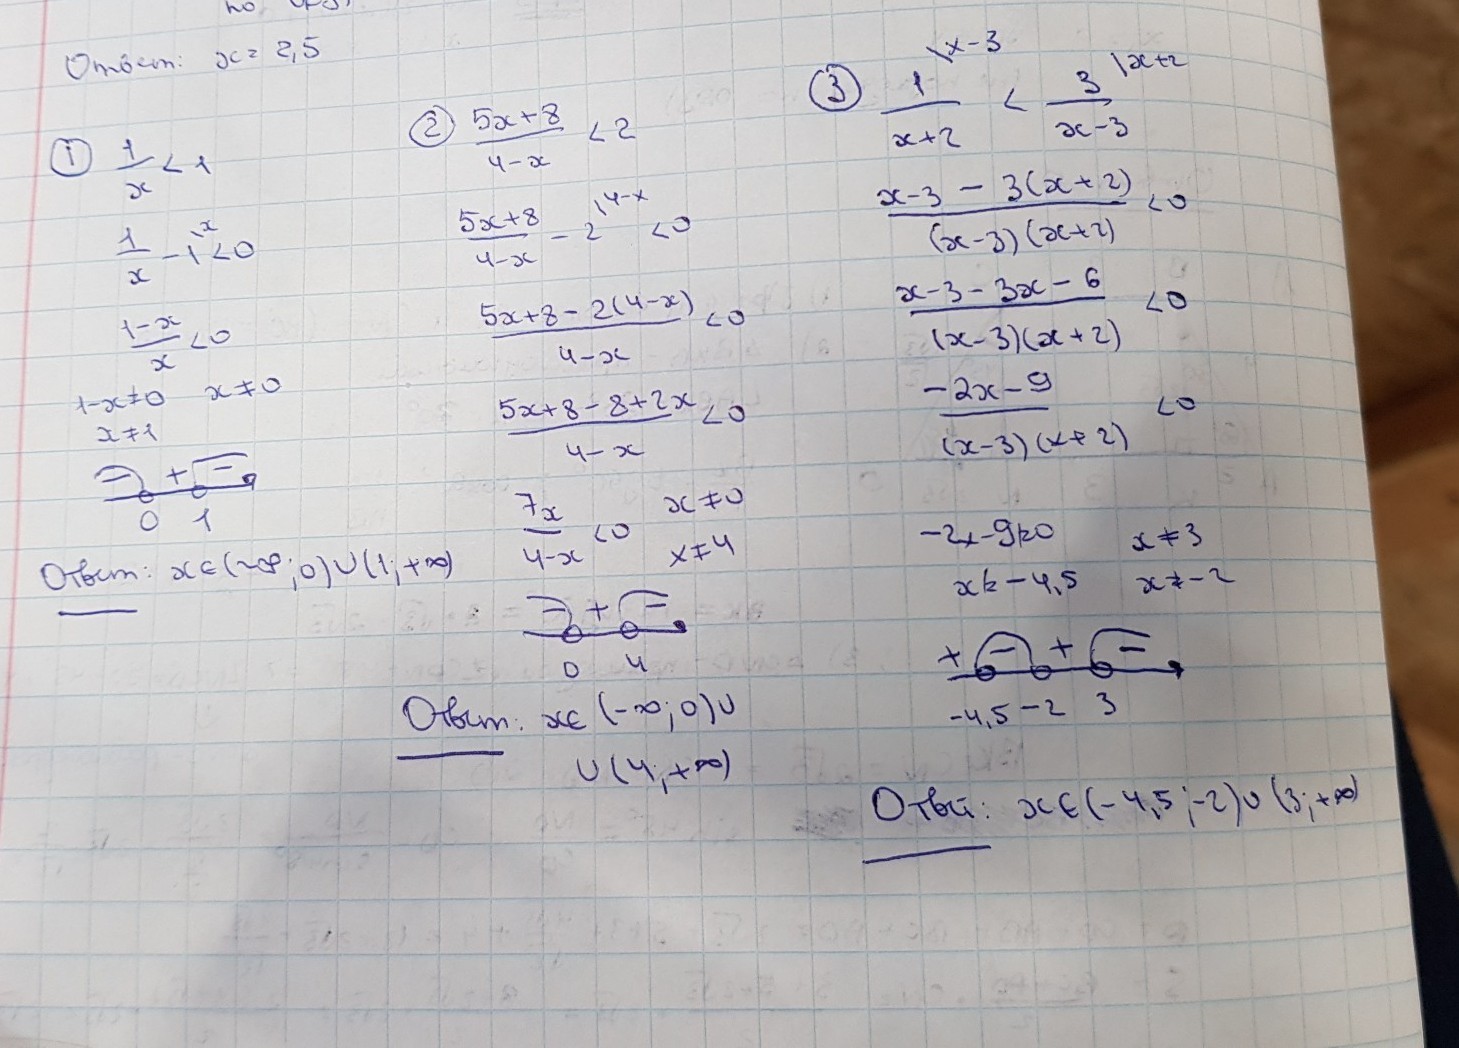 Ответ: x = 2,5
① 1/x < 1
1/x - 1\x < 0
(1-x)/x < 0
1-x≠0 x≠0
x≠1
- + -
0 1
Ответ: x∈(-∞;0)∪(1;+∞)
② (5x+8)/(4-x) < 2
(5x+8)/(4-x) - 2\4-x < 0
(5x+8-2(4-x))/(4-x) < 0
(5x+8-8+2x)/(4-x) < 0
7x/(4-x) < 0 x≠0
x≠4
- + -
0 4
Ответ: x∈(-∞;0)∪
∪(4;+∞)
③ 1/(x+2) \x-3 < 3/(x-3) \x+2
(x-3 - 3(x+2))/((x-3)(x+2)) < 0
(x-3-3x-6)/((x-3)(x+2)) < 0
(-2x-9)/((x-3)(x+2)) < 0
-2x-9≠0 x≠3
x≠-4,5 x≠-2
+ - + -
-4,5 -2 3
Ответ: x∈(-4,5;-2)∪(3;+∞)